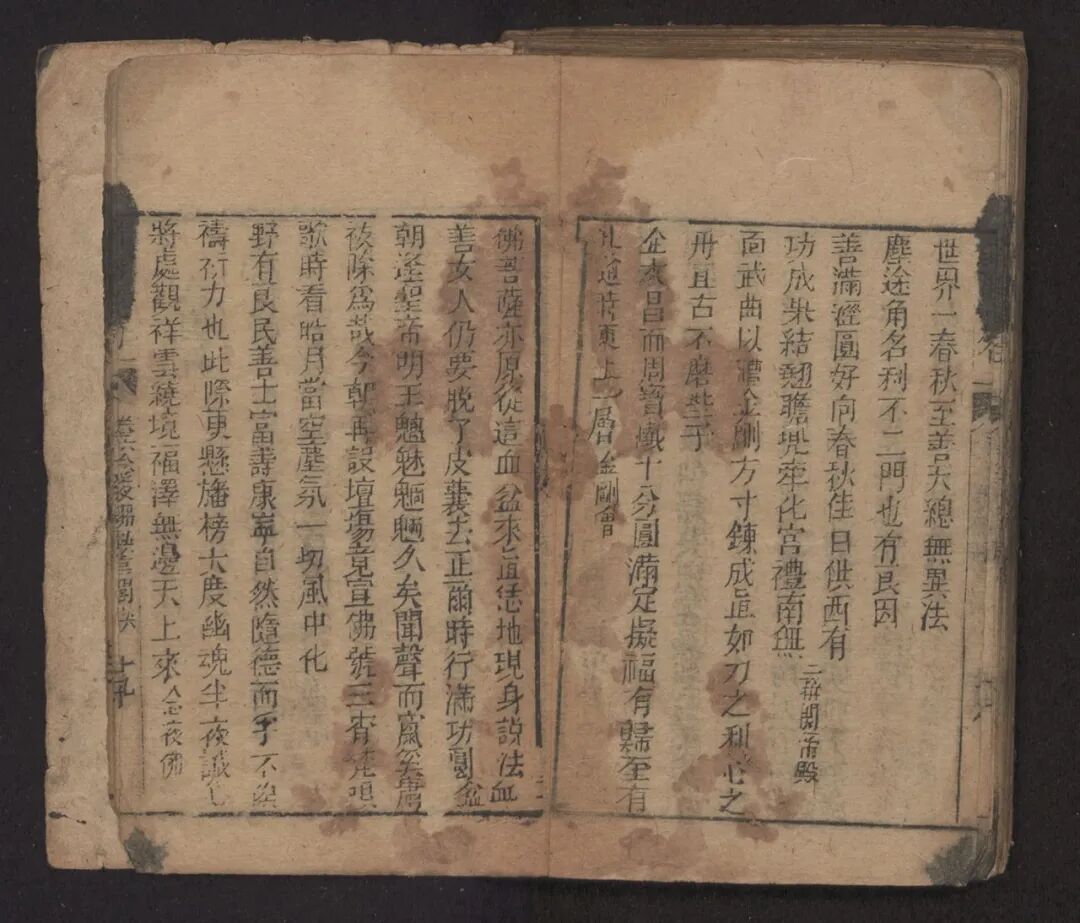 世界一春秋至善天總無異法
塵途角名利不二門也有良因
善滿瀝圓好向春秋佳日供西有
功成果結翹瞻兜率化宮禮南無
三夜關帝殿
面武曲以澧金剛方寸鍊成直如刀之利心之
丹亘古不磨
文昌而周寶懺十分圓滿定擬福有歸至有
道時更上一層金剛會
佛菩薩亦原從這血盆來直恁地現身說法血盆
善女人仍要脫了皮囊去正爾時行滿功圓
朝逢聖帝明王魑魅魍魎久矣聞聲而竄矣
祓除為哉今朝再設壇場竟宣佛號三
歌時看皓月當空塵氛一切風中化
野有良民善士富壽康寧自然隨德而孚不
禱祈力也此際更懸旛榜大度幽魂半夜
將處觀祥雲繞境福澤無邊天上來念夜佛
十九